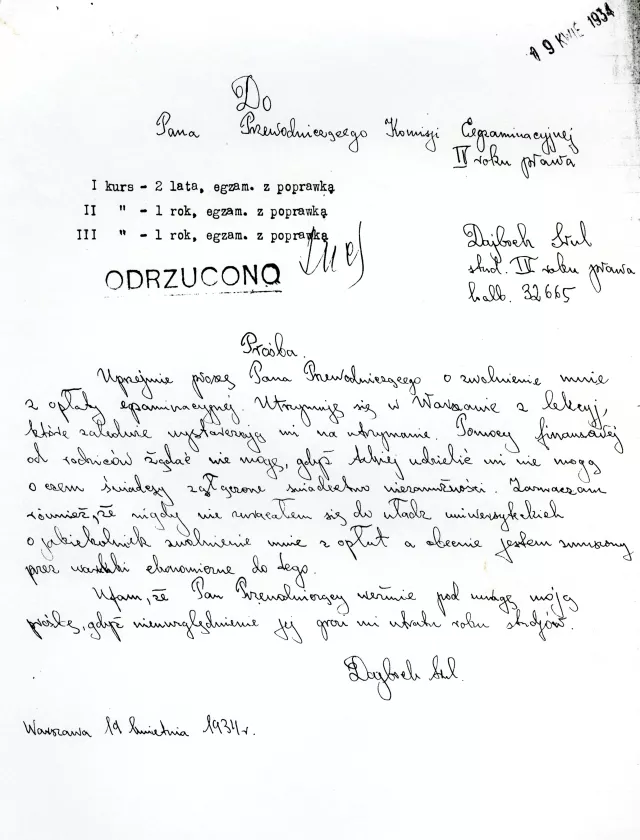 19 KWIE 1934
Do
Pana Przewodniczącego Komisji Egzaminacyjnej
IV roku prawa
I kurs - 2 lata, egzam. z poprawką
II " - 1 rok, egzam. z poprawką
III " - 1 rok, egzam. z poprawką
ODRZUCONO
Dajboch Szul
stud. IV roku prawa
N alb. 32665
Prośba.
Uprzejmie proszę Pana Przewodniczącego o zwolnienie mnie
z opłaty egzaminacyjnej. Utrzymuję się w Warszawie z lekcyj,
które zaledwie wystarczają mi na utrzymanie. Pomocy finansowej
od rodziców żądać nie mogę, gdyż takiej udzielić mi nie mogą
o czem świadczy załączone świadectwo niezamożności. Zaznaczam
również, że nigdy nie zwracałem się do władz uniwersyteckich
o jakiekolwiek zwolnienie mnie z opłat a obecnie jestem zmuszony
przez warunki ekonomiczne do tego.
Ufam, że Pan Przewodniczący weźmie pod uwagę moją
prośbę, gdyż nieuwzględnienie jej grozi mi utratą roku studjów.
Dajboch Szul.
Warszawa 19 kwietnia 1934 r.